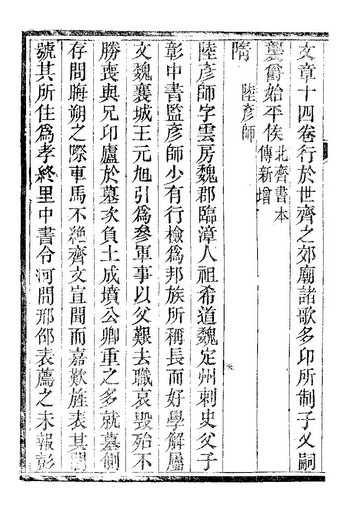 文章十四卷行於世齊之郊廟諸歌多卬所制子乂嗣
襲爵始平侯北齊書本
傳新增
隋 陸彥師
陸彥師字雲房魏郡臨漳人祖希道魏定州刺史父子
彰中書監彥師少有行檢爲邦族所稱長而好學解屬
文魏襄城王元旭引爲參軍事以父艱去職哀毀殆不
勝喪與兄卬廬於墓次負土成墳公卿重之多就墓側
存問晦朔之際車馬不絶齊文宣聞而嘉歎旌表其閭
號其所住爲孝終里中書令河間邢邵表薦之未報彭